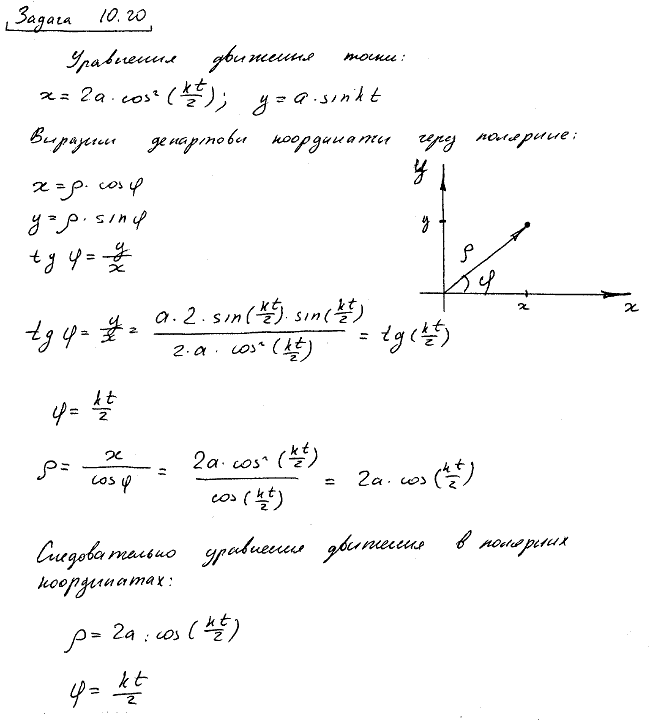 Задача 10.20
Уравнения движения точки:
x = 2a · cos² (kt/2); y = a · sin kt
Выразим декартовы координаты через полярные:
x = ρ · cos φ
y = ρ · sin φ
tg φ = y/x
y
y
ρ
φ
x
x
tg φ = y/x = (a · 2 · sin(kt/2) · sin(kt/2)) / (2 · a · cos² (kt/2)) = tg (kt/2)
φ = kt/2
ρ = x / cos φ = (2a · cos² (kt/2)) / (cos (kt/2)) = 2a · cos (kt/2)
Следовательно уравнения движения в полярных
координатах:
ρ = 2a · cos (kt/2)
φ = kt/2